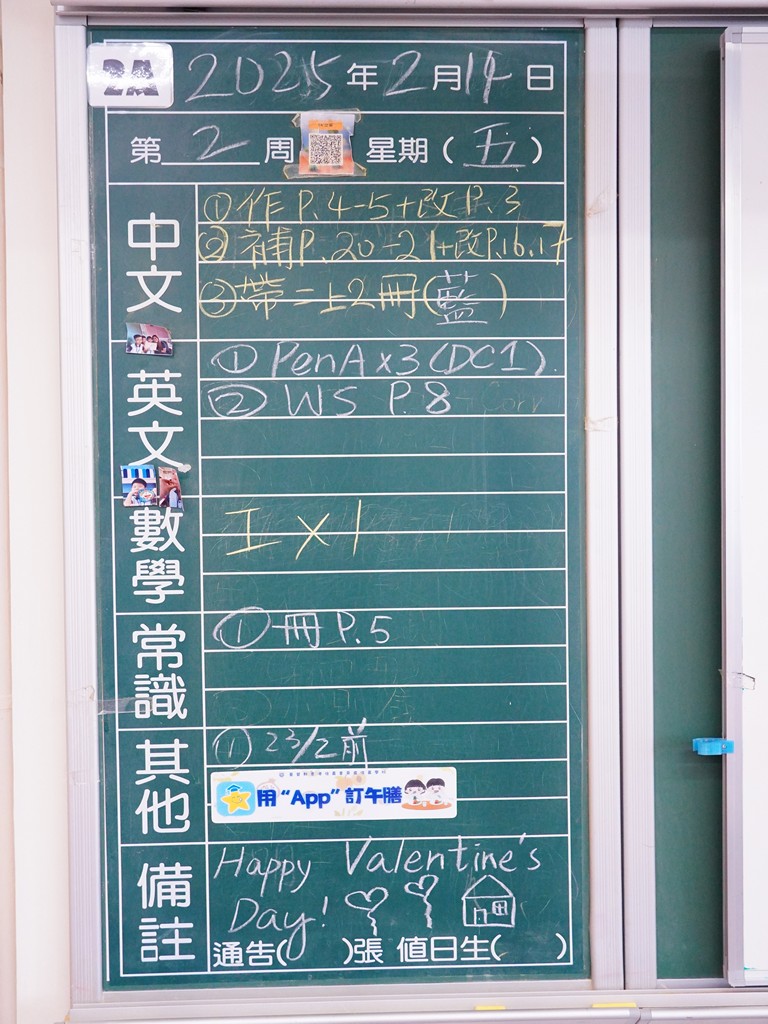 2A 2025年2月14日
第2周 星期(五)
中文
①作 P.4-5+改 P.3
②補P.20-21+改P.16,17
③帶二上2冊(藍)
英文
① PenA x3 (DC1).
② WS P.8
數學
工 x 1
常識
① 冊 P.5
其他
① 23/2前
用“App”訂午膳
備註
Happy Valentine's
Day!
通告( )張 值日生( )